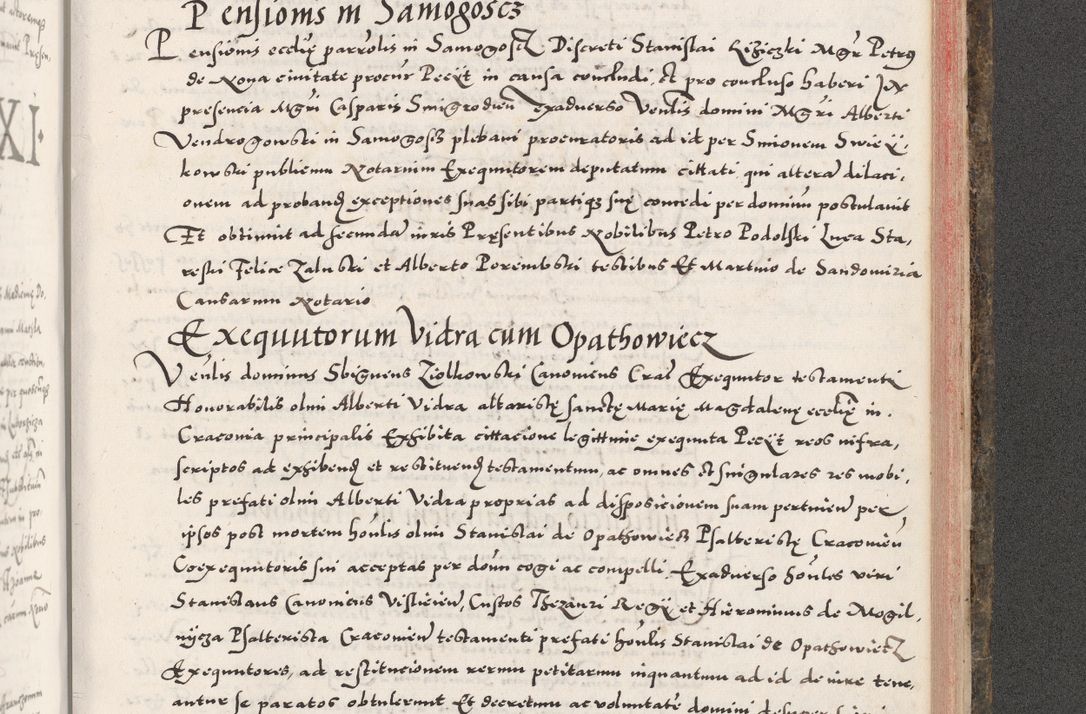 Pensionis in Samogoscz
Pensionis ecclię parrolis in Samogoscz Discreti Stanislai Liziczki Mgr Petrus
de Nova civitate procur Pecÿt in causa concludi, Et pro concluso haberi In
presencia Mgri Casparis Smigrodien Exadverso Venlis domini Mgri Alberti
Vendrogowski in Samogoscz plebani procuratoris ad id per Simonem Swieÿ,
kowski publicum Notarium Exequutorem deputatum cittati, qui alteram dilaci,
onem ad proband exceptiones suas sibi partiqz suę concedi per dominum postulavit
Et obtinuit ad secunda iuris Pręsentibus Nobilibus Petro Podolski Luca Sta,
reski Felice Zaluski et Alberto Porembski testibus Et Martino de Sandomiria
Causarum Notario
Exequutorum Vidra cum Opathowiecz
Venlis dominus Sbigneus Ziolkowski Canonicus Cra Exequutor testamenti
Honorabilis olim Alberti Vidra altaristę sanctę Marię Magdalenę ecclię in
Cracovia principalis Exhibita cittacione legittime exequuta Pecÿt reos infra,
scriptos ad exhibend et restituend testamentum, ac omnes Et singulares res mobi,
les prefati olim Alberti Vidra proprias ad disposicionem suam pertinen per
ipsos post mortem honlis olim Stanislai de Opathowiecz Psalteristę Cracovien
Coexequutoris sui acceptas per doūm cogi ac compelli, Exadverso honles viri
Stanislaus Canonicus Vislicien, Custos Thezauri Regÿ et Hieronimus de Mogil,
nÿcza Psalterista Cracovien testamenti prefati honlis Stanislai de Opathowiecz
Exequutores, ad restitucionem rerum petitarum inquantum ad id de iure tene,
antur se paratos obtulerunt Et decretum ac voluntate domini